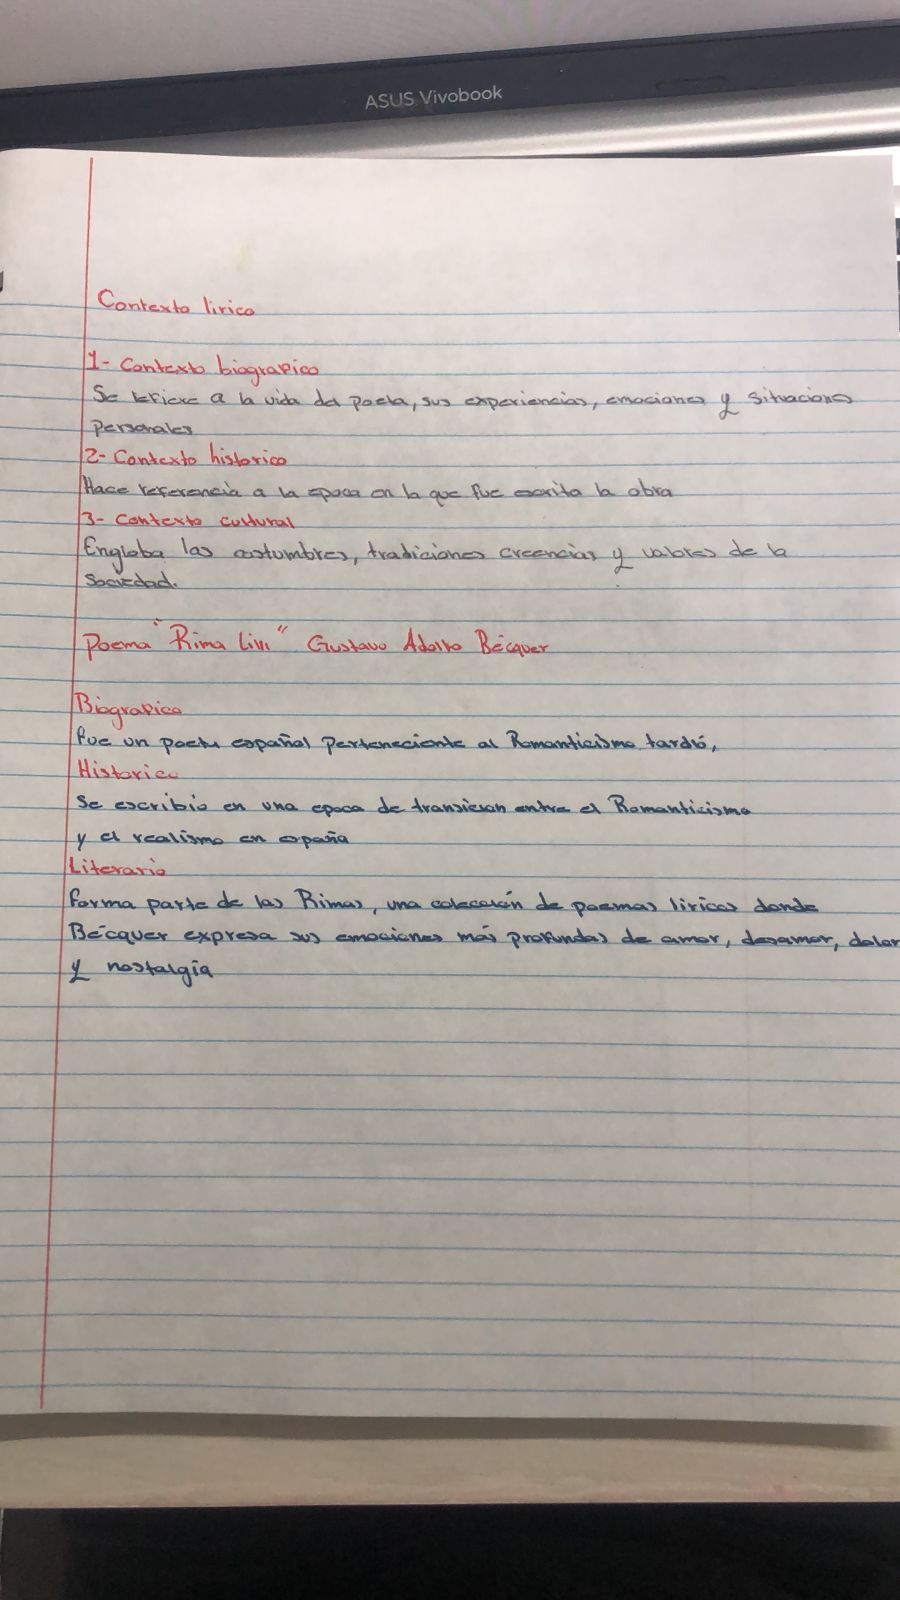 ASUS Vivobook
Contexto lirico
1- Contexto biografico
Se refiere a la vida del poeta, sus experiencias, emociones y situaciones
personales
2- Contexto historico
Hace referencia a la epoca en la que fue escrita la obra
3- Contexto cultural
Engloba las costumbres, tradiciones creencias y valores de la
sociedad.
Poema "Rima Liii" Gustavo Adolfo Bécquer
Biografico
fue un poeta español perteneciente al Romanticismo tardío,
Historico
Se escribio en una epoca de transicion entre el Romanticismo
y el realismo en españa
Literario
Forma parte de las Rimas, una colección de poemas liricos donde
Bécquer expresa sus emociones más profundas de amor, desamor, dolor
y nostalgia